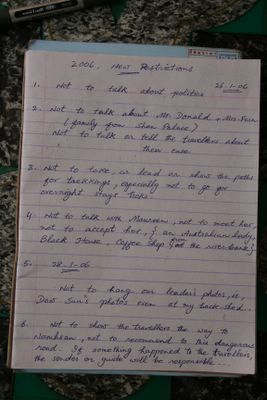 2006. New Restrictions
26-1-06
1. Not to talk about politics
2. Not to talk about Mr. Donald + Mrs. Fern
(family from Shan Palace)
Not to talk or tell the travellers about
their case.
3. Not to take, or lead or show the paths
for trekkings, especially not to go for
overnight stays treks.
4. Not to talk with Maureen, not to meet her,
not to accept her, { an Australian lady,
Black House, Coffee Shop from on the river-bank }
5. 28-1-06
Not to hang our leader's photos, ie,
Daw Suu's photos even at my back shed...
6. Not to show the travellers the way to
Namhsan, not to recommend to this dangerous
road. If something happened to the travellers,
the sender or guide will be responsible...